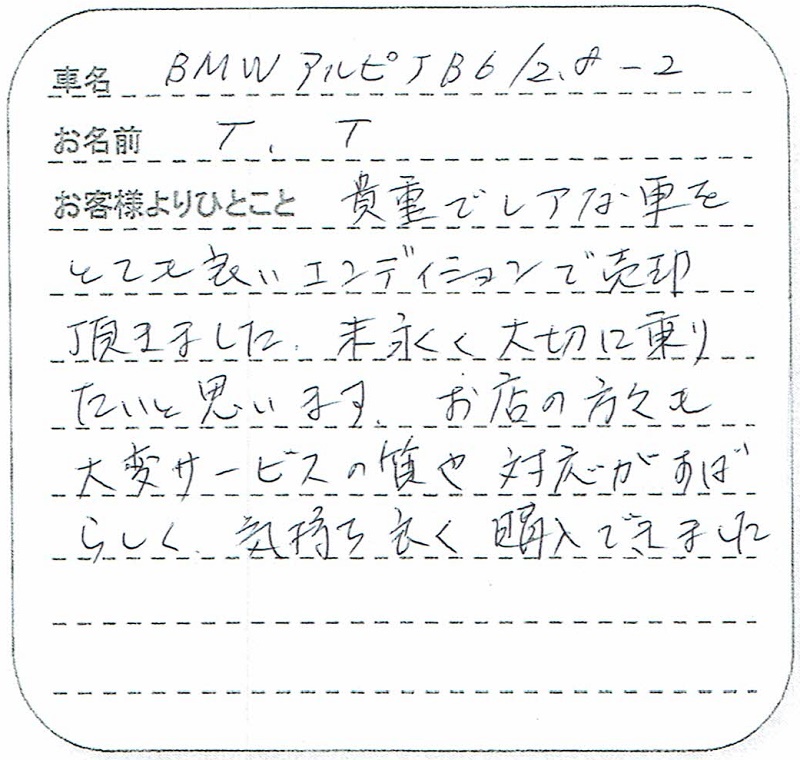 車名 BMW アルピナB6/2.8-2
お名前 T. T
お客様よりひとこと 貴重でレアな車を
とても良いコンディションで売却
頂きました。末永く大切に乗り
たいと思います。お店の方々も
大変サービスの質や対応がすば
らしく、気持ち良く購入できました